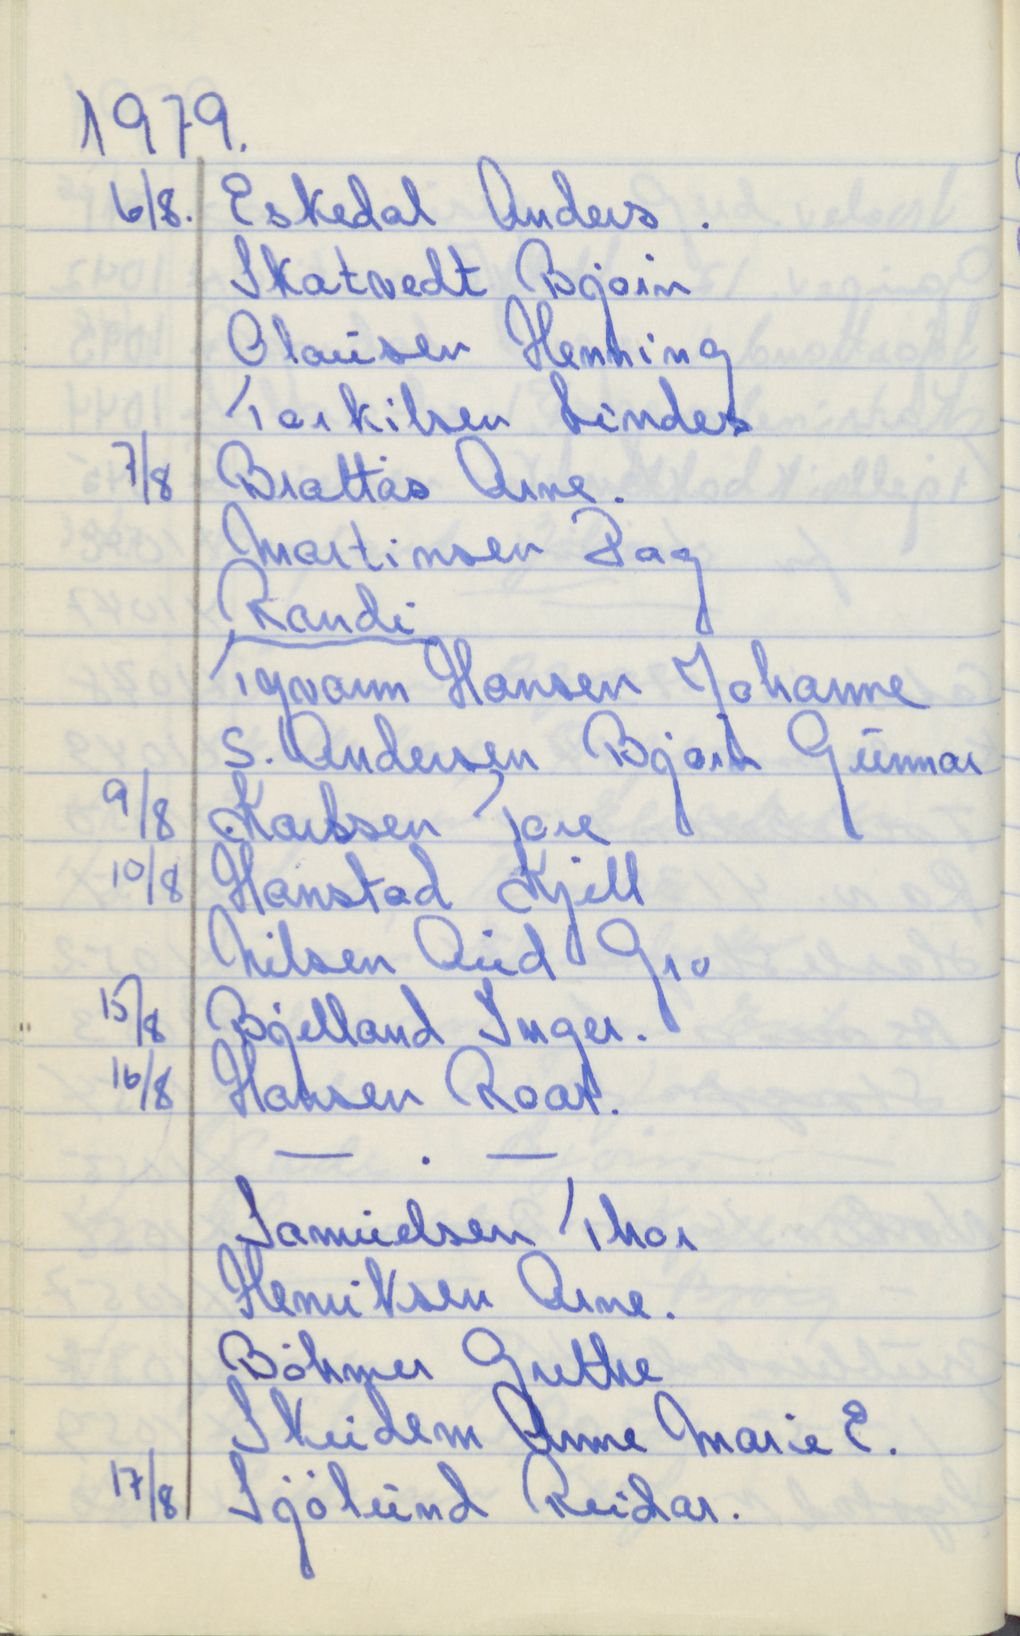 1979.
6/8. Eskedal Anders.
Skatvedt Bjørn
Clausen Henning
Torkilsen Sindes
7/8 Brattås Arne.
Martinsen Dag
Randi
Tyvann Hansen Johanne
S. Andersen Bjørn Gunnar
9/8 Karlsen Tore
10/8 Hanstad Kjell
Nilsen Aud Gro
15/8 Bjelland Inger.
16/8 Hansen Roar.
— . —
Samuelsen Thor
Henriksen Arne.
Böhmer Grethe
Skeidem Anne Marie E.
17/8 Sjölund Reidar.